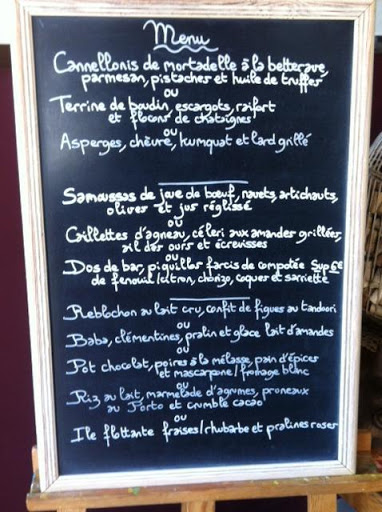 Menu
Cannellonis de mortadelle à la betterave,
parmesan, pistaches et huile de truffes
ou
Terrine de boudin, escargots, raifort
et flocons de chataignes
ou
Asperges, chèvre, kumquat et lard grillé
Samoussas de joue de bœuf, navets, artichauts,
olives et jus réglissé
ou
Caillettes d'agneau, céleri aux amandes grillées,
ail des ours et écrevisses
ou
Dos de bar, piquillos farcis de compotée Sup 6€
de fenouil/citron, chorizo, coques et sarriette
Reblochon au lait cru, confit de figues au tandoori
ou
Baba, clémentines, pralin et glace lait d'amandes
ou
Pot chocolat, poires à la mélasse, pain d'épices
et mascarpone/fromage blanc
ou
Riz au lait, marmelade d'agrumes, pruneaux
au Porto et crumble cacao
ou
Ile flottante fraises/rhubarbe et pralines roses